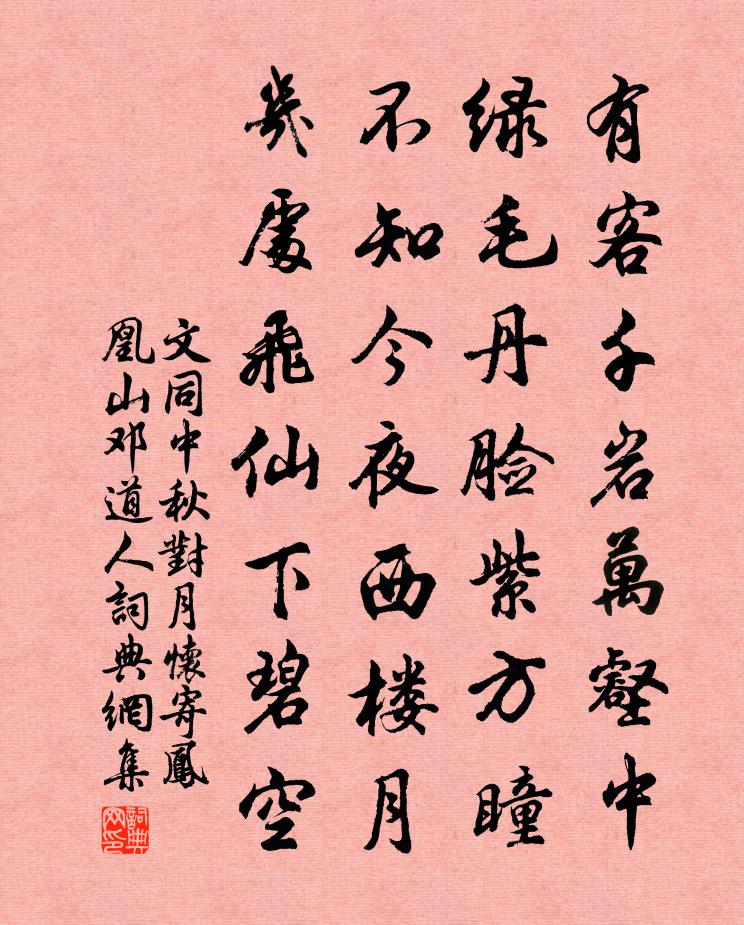 有客千岩萬壑中
绿毛丹脸紫方瞳
不知今夜西楼月
幾處飛仙下碧空
文同中秋對月懷寄鳳
凰山邓道人詞典網集
詞典网印